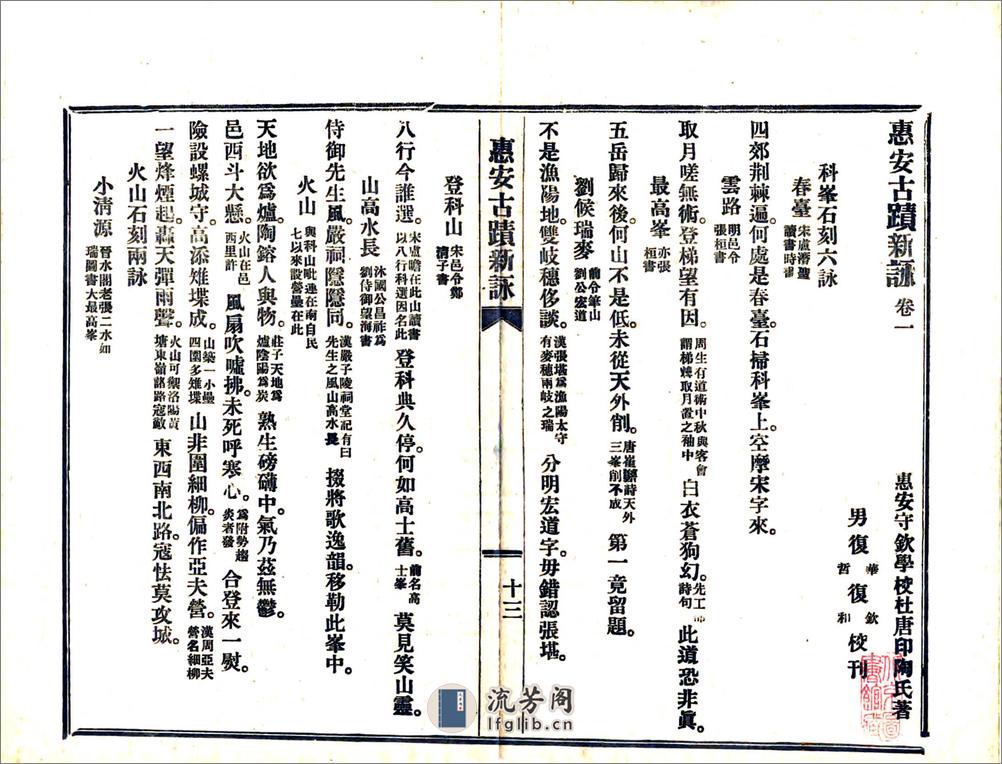 惠安古蹟新詠 卷一
惠安守欽學校杜唐印陶氏著
男復華 復欽 校刊
哲 和
科峯石刻六詠
春臺 宋盧濟聖讀書時書
四郊荆棘遍。何處是春臺。石掃科峯上。空摩宋字來。
雲路 明邑令張桓書
取月嗟無術。登梯望有因。周生有道術中秋與客會謂梯燒取月置之袖中 白衣蒼狗幻。先工部詩句 此道恐非眞。
最高峯 亦張桓書
五岳歸來後。何山不是低。未從天外削。唐崔顥詩天外三峯削不成 第一竟留題。
劉候瑞麥 前令筆山劉公宏道
不是漁陽地。雙岐穗侈談。漢張堪爲漁陽太守有麥穗兩岐之瑞 分明宏道字。毋錯認張堪。
惠安古蹟新詠
十三
登科山 宋邑令鄭清子書
八行今誰選。宋盧瞻在此山讀書以八行科選因名此 登科典久停。何如高士舊。前名高士峯 莫見笑山靈。
山高水長 沐國公昌祚爲劉侍御望海書
侍御先生風。嚴祠隱隱同。漢嚴子陵祠堂記有曰先生之風山高水長 掇將歌逸韻。移勒此峯中。
火山 與科山毗連在南自民七以來設營壘在此
天地欲爲爐。陶鎔人與物。莊子天地爲爐陰陽爲炭 熟生磅礴中。氣乃茲無鬱。
邑西斗大懸。火山在邑西里許 風扇吹噓拂。未死呼寒心。爲附勢趨炎者發 合登來一熨。
險設螺城守。高添雉堞成。山築一小壘四圍多雉堞 山非圍細柳。偏作亞夫營。漢周亞夫營名細柳
一望烽煙起。轟天彈雨聲。火山可觀洛陽黃塘東嶺諸路寇敵 東西南北路。寇怯莫攻城。
火山石刻兩詠
小清源 晉水閣老張二水如瑞圖書大最高峯
流芳阁
lfglib.cn